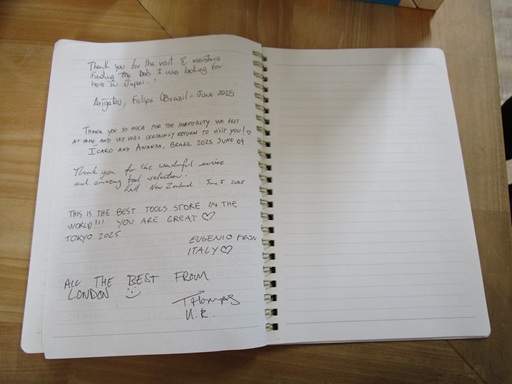 Thank you for the visit & assistance
finding the Dab I was looking for
here in Japan.
Arigatou, Felipe (Brazil - June 2025
THANK YOU SO MUCH FOR THE HOSPITALITY WE FELT
AT HOME AND WE WILL CERTAINLY RETURN TO VISIT YOU! ♡
ICARO AND AMANDA, BRAZIL 2025 JUNE 04
Thank you for the wonderful service
and amazing tool selection.
New Zealand Jun 5 2025
THIS IS THE BEST TOOLS STORE IN THE
WORLD!!! YOU ARE GREAT ♡
TOKYO 2025
EUGENIO FROM
ITALY ♡
ALL THE BEST FROM
LONDON :)
U.K.